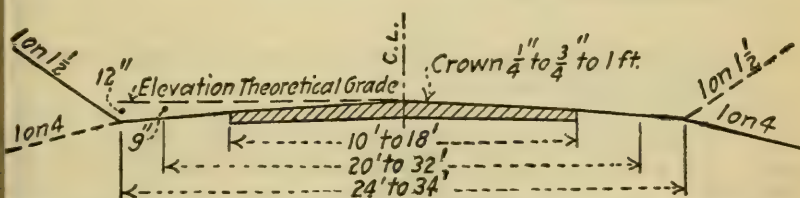 1 on 1½
12"
Elevation Theoretical Grade
C.L.
Crown ¼" to ¾" to 1 ft.
1 on 1½
1 on 4
9"
1 on 4
10' to 18'
20' to 32'
24' to 34'